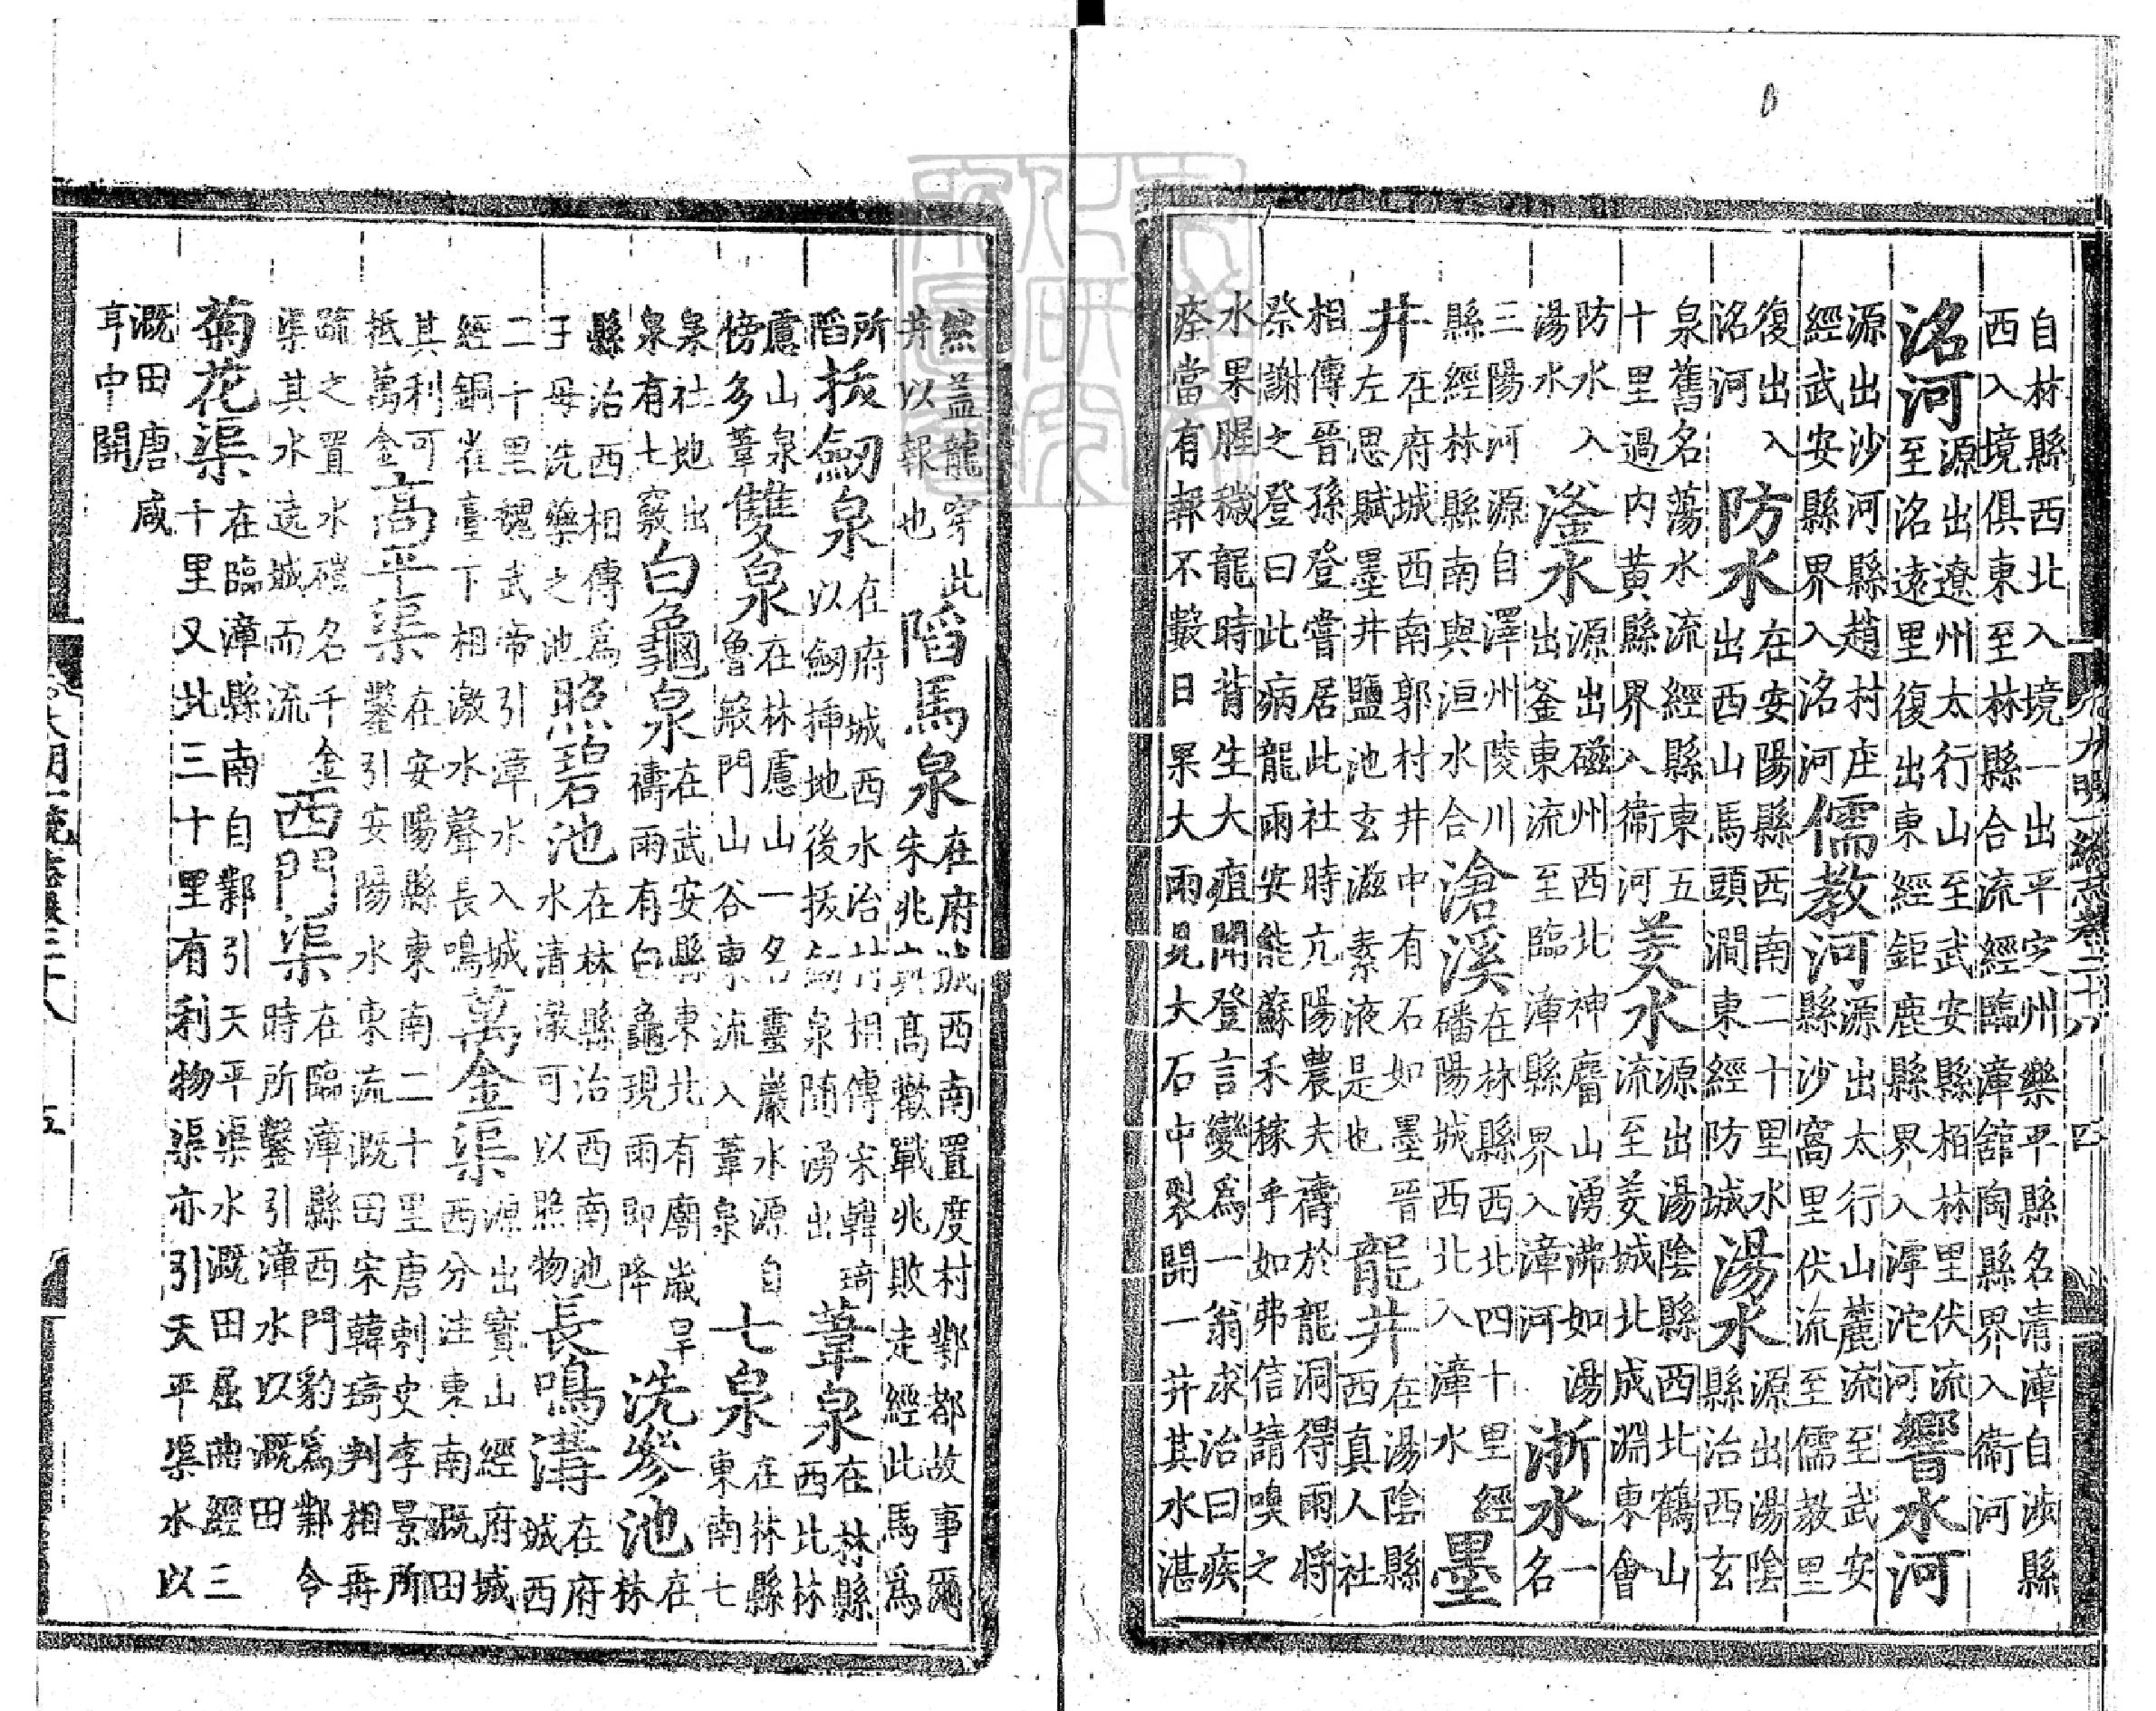 自林縣西北入境一出平定州樂平縣名清漳自渉縣
西入境俱東至林縣合流經臨漳舘陶縣界入衞河
洺河
源出遼州太行山至武安縣栢林里伏流
至洺遠里復出東經鉅鹿縣界入滹沱河
響水河
源出沙河縣趙村庄
經武安縣界入洺河
儒教河
源出太行山麓流至武安
縣沙窩里伏流至儒教里
復出入
洺河
防水
在安陽縣西南二十里水
出西山馬頭澗東經防城
湯水
源出湯陰
縣治西玄
泉舊名蕩水流經縣東五
十里過内黃縣界入衞河
羑水
源出湯陰縣西北鶴山
流至羑城北成淵東會
防水入
湯水
滏水
源出磁州西北神麕山湧沸如湯
出釜東流至臨漳縣界入漳河
浙水
一
名
三陽河源自澤州陵川
縣經林縣南與洹水合
滄溪
在林縣西北四十里經
磻陽城西北入漳水
墨
井
在府城西南郭村井中有石如墨晉
左思賦墨井鹽池玄滋素液是也
龍井
在湯陰縣
西真人社
相傳晉孫登嘗居此社時亢陽農夫禱於龍洞得雨將
祭謝之登曰此病龍雨安能蘇禾稼乎如弗信請嗅之
水果腥穢龍時背生大疽聞登言變爲一翁求治曰疾
痊當有報不數日果大雨見大石中裂開一井其水湛
大明一統志卷二十八
四
然蓋龍穿此
井以報也
䧟馬泉
在府城西南置度村鄴都故事爾
朱兆與高歡戰兆敗走經此馬爲
所
䧟
拔劒泉
在府城西水冶村相傳宋韓琦
以劒挿地後拔劒泉隨湧出
葦泉
在林縣
西北林
慮山泉
傍多葦
雙泉
在林慮山一名靈巖水源自
魯般門山谷東流入葦泉
七泉
在林縣
東南七
泉社地出
泉有七竅
白龜泉
在武安縣東北有廟歲旱
禱雨有白龜現雨即降
洗參池
在
林
縣治西相傳爲
子母洗藥之池
照碧池
在林縣治西南池
水清澈可以照物
長鳴溝
在府
城西
二十里魏武帝引漳水入城
經銅雀臺下相激水聲長鳴
萬金渠
源出寳山經府城
西分注東南溉田
其利可
抵萬金
高平渠
在安陽縣東南二十里唐刺史李景所
鑿引安陽水東流溉田宋韓琦判相再
疏之置水磑名千金
渠其水遶城而流
西門渠
在臨漳縣西門豹爲鄴令
時所鑿引漳水以溉田
菊花渠
在臨漳縣南自鄴引天平渠水溉田屈曲經三
十里又北三十里有利物渠亦引天平渠水以
溉田唐咸
亨中開
大明一統志卷二十八
五